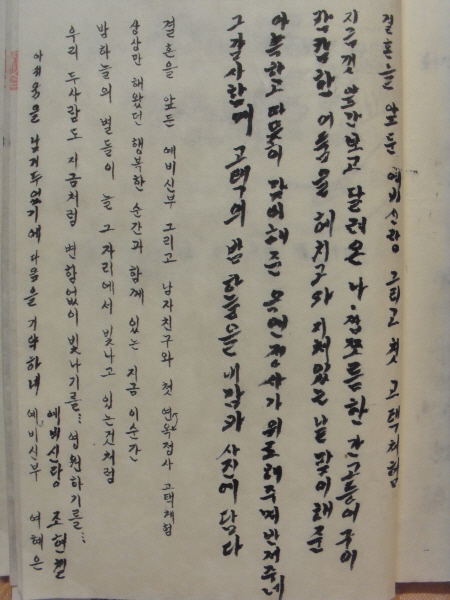 결혼을 앞둔 예비신랑 그리고 첫 고택체험
지금껏 앞만보고 달려온 나. 짭쪼름한 간고등어구이
캄캄한 어둠을 헤치구와 지쳐있는 날 맞이해준
아늑하고 따뜻이 맞이해준 목연정사가 위로해주며 반겨주네
그 감사함에 고택의 밤 하늘을 내맘과 사진에 담다
결혼을 앞둔 예비신부 그리고 남자친구와 첫 연목정사 고택체험
상상만 해왔던 행복한 순간과 함께 있는 지금 이순간
밤하늘의 별들이 늘 그 자리에서 빛나고 있는것처럼
우리 두사람도 지금처럼 변함없이 빛나기를... 영원하기를...
아쉬움을 남겨두었기에 다음을 기약하네
예비신랑 조현철
예비신부 여혜은